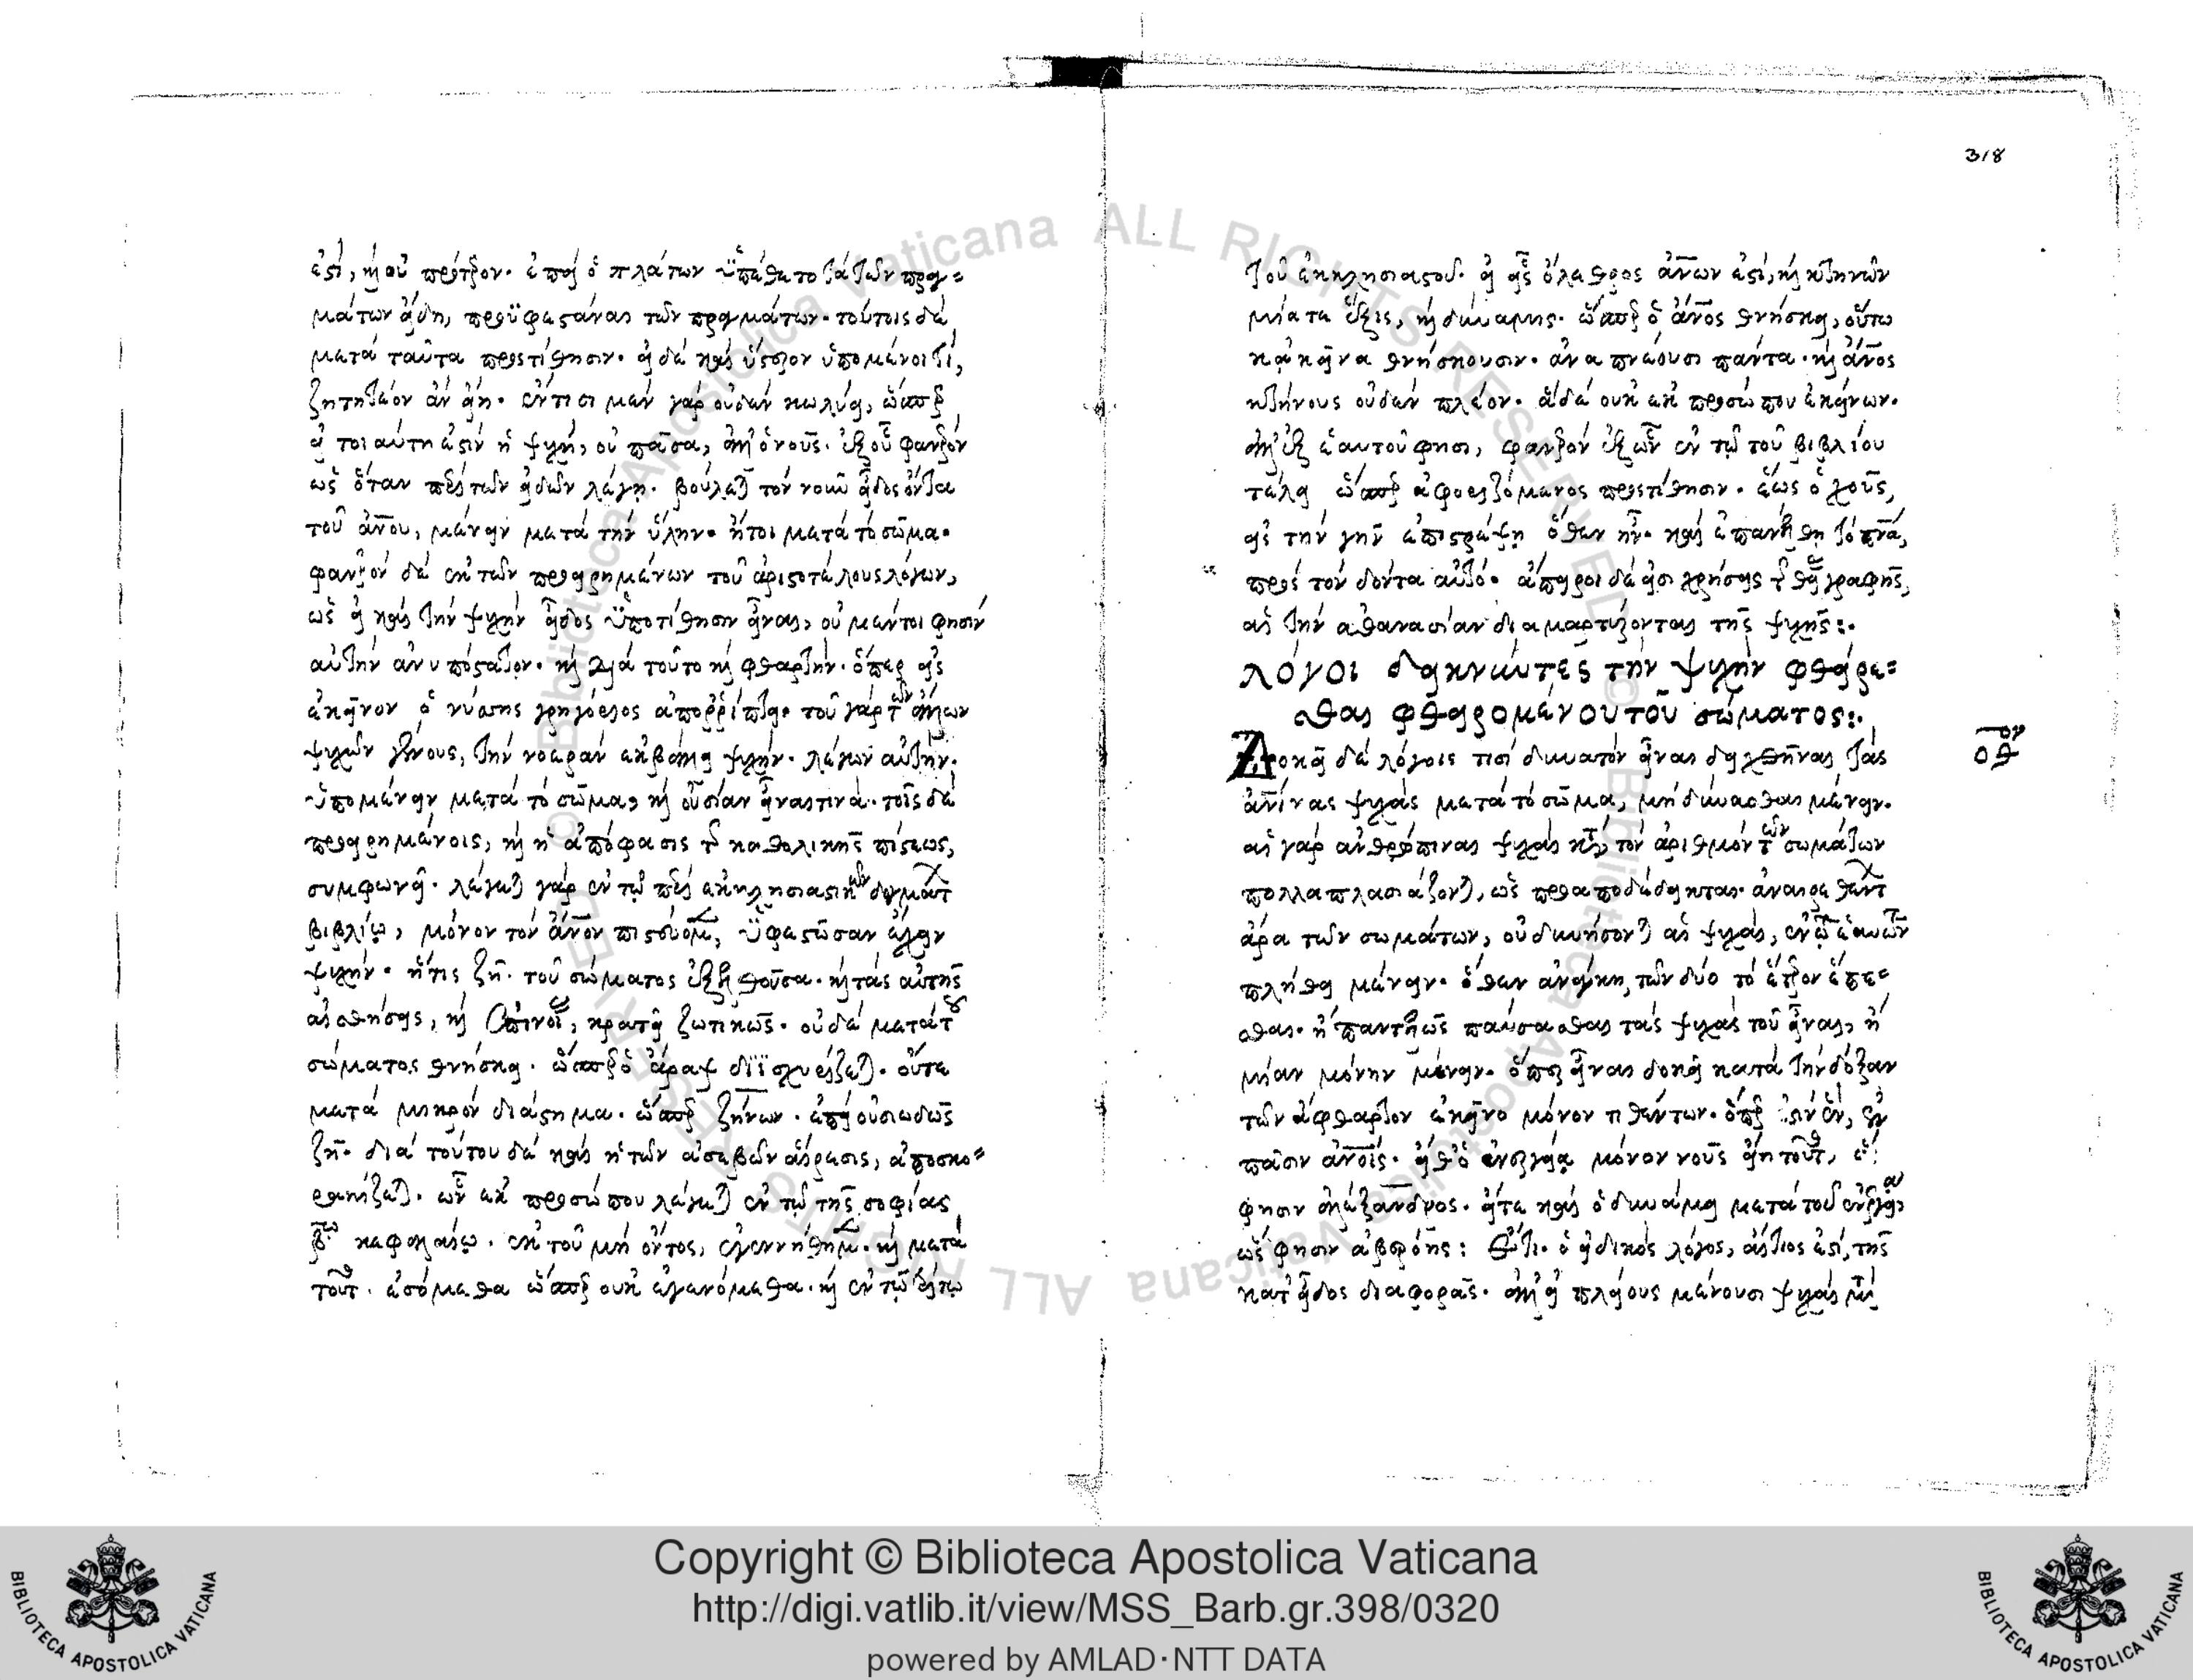 ἐστὶ, καὶ οὐ πρότερον. ἐπεὶ ὁ πλάτων ὑπέθετο τὰ τῶν πραγ=
μάτων εἴδη, προϋφεστάναι τῶν πραγμάτων. τούτοις δὲ
μετὰ ταῦτα προστίθησιν. εἰ δὲ καὶ ὕστερον ὑπομένει τί,
ζητητέον ἂν εἴη. ἔν τισι μὲν γὰρ οὐδὲν κωλύει, ὥσπερ
εἰ τοιαύτη ἐστὶν ἡ ψυχὴ, οὐ πᾶσα, ἀλλ' ὁ νοῦς. ἐξ οὗ φανερὸν
ὡς ὅταν περὶ τῶν εἰδῶν λέγῃ. βούλεται τὸν νοῦν εἶδος ὄντα
τοῦ ἀνου, μένειν μετὰ τὴν ὕλην. ἤτοι μετὰ τὸ σῶμα.
φανερὸν δὲ ἐκ τῶν προειρημένων τοῦ ἀριστοτέλους λόγων,
ὡς εἰ καὶ τὴν ψυχὴν εἶδος ὑποτίθησιν εἶναι, οὐ μέντοι φησὶν
αὐτὴν ἀνυπόστατον. καὶ διὰ τοῦτο καὶ φθαρτὴν. ὅπερ εἰς
ἐκεῖνον ὁ νύσσης γρηγόριος ἀπορρίπτει. τοῦ γὰρ τῶν ἄλλων
ψυχῶν γένους, τὴν νοερὰν ἐκβάλλει ψυχήν. λέγων αὐτὴν.
ὑπομένειν μετὰ τὸ σῶμα, καὶ οὐσίαν εἶναι τινά. τοῖς δὲ
προειρημένοις, καὶ ἡ ἀπόφασις τῆς καθολικῆς πίστεως,
συμφωνεῖ. λέγεται γὰρ ἐν τῷ περὶ ἐκκλησιαστικῶν δογμάτ
βιβλίῳ, μόνον τὸν ἄνον πιστεύομεν, ὑφεστῶσαν ἔχειν
ψυχήν. ἥτις ζῇ. τοῦ σώματος ἐξελθοῦσα. καὶ τὰς αὐτῆς
αἰσθήσεις, καὶ ἐπινοί, κρατεῖ ζωτικῶς. οὐδὲ μετὰ τοῦ
σώματος θνήσκει. ὥσπερ ὁ ἄραψ διϊσχυρίζεται. οὔτε
μετὰ μικρὸν διάστημα. ὥσπερ ζήνων. ἐπεὶ οὐσιωδῶς
ζῇ. διὰ τούτου δὲ καὶ ἡ τῶν ἀσεβῶν αἵρεσις, ἀποσκο=
ρακίζεται. ὧν ἐκ προσώπου λέγεται ἐν τῷ τῆς σοφίας
βῳ κεφαλαίῳ. ἐκ τοῦ μὴ ὄντος, ἐγεννήθημεν. καὶ μετὰ
τοῦτ. ἐσόμεθα ὥσπερ οὐκ ἐγενόμεθα. καὶ ἐν τῷ τρίτῳ
318
τοῦ ἐκκλησιαστοῦ. εἰ εἷς ὄλεθρος ἀνων ἐστὶ, καὶ κτηνῶν
μία τε ἕξις, καὶ δύναμις. ὥσπερ ὁ ἄνος θνήσκει, οὕτω
κἀκεῖνα θνήσκουσιν. ἀναπνέουσι πάντα. καὶ ἄνος
κτήνους οὐδὲν πλέον. ἃ δὲ οὐκ ἐκ προσώπου ἐκείνων.
ἀλλ' ἐξ ἑαυτοῦ φησι, φανερὸν ἐξ ὧν ἐν τῷ τοῦ βιβλίου
τέλει ὥσπερ ἀφοριζόμενος προστίθησιν. ἕως ὁ χοῦς,
εἰς τὴν γῆν ἐπιστρέψῃ ὅθεν ἦν. καὶ ἐπανέλθῃ τὸ πνα,
πρὸς τὸν δόντα αὐτό. ἄπειροι δὲ εἰσι χρήσεις τῆς θείας γραφῆς,
αἳ τὴν ἀθανασίαν διαμαρτύρονται τῆς ψυχῆς:.
λόγοι δεικνύντες τὴν ψυχὴν φθείρε=
σθαι φθειρομένου τοῦ σώματος:.
Δοκεῖ δὲ λόγοις τισὶ δυνατὸν εἶναι δειχθῆναι τὰς
οθον
ἀνίνας ψυχὰς μετὰ τὸ σῶμα, μὴ δύνασθαι μένειν.
αἱ γὰρ ἀνθρώπιναι ψυχαὶ κατὰ τὸν ἀριθμὸν τῶν σωμάτων
πολλαπλασιάζονται, ὡς προαποδέδεικται. ἀναιρεθέντ
ἄρα τῶν σωμάτων, οὐ δυνήσονται αἱ ψυχαὶ, ἐν τῷ ἑαυτῶν
πλήθει μένειν. ὅθεν ἀνάγκη, τῶν δύο τὸ ἕτερον ἕπε=
σθαι. ἢ παντελῶς παύσασθαι τὰς ψυχὰς τοῦ εἶναι, ἢ
μίαν μόνην μένειν. ὅπερ εἶναι δοκεῖ κατὰ τὴν δόξαν
τῶν ἄφθαρτον ἐκεῖνο μόνον τιθέντων. ὅπερ ἐστὶν ἓν, ἐν
πᾶσιν ἀνοις. εἴθ' ὁ ἐνεργείᾳ μόνον νοῦς εἴη τοῦτ,
φησιν ἀλέξανδρος. εἴτε καὶ ὁ δυνάμει μετὰ τοῦ ἐνεργείᾳ,
ὡς φησιν ἀβερόης: Ἔτι. ὁ εἰδικὸς λόγος, αἴτιος ἐστὶ, τῆς
κατ' εἶδος διαφορᾶς. ἀλλ' εἰ πλείους μένουσι ψυχαὶ μετὰ
Copyright © Biblioteca Apostolica Vaticana
http://digi.vatlib.it/view/MSS_Barb.gr.398/0320
powered by AMLAD·NTT DATA
BIBLIOTECA APOSTOLICA VATICANA
BIBLIOTECA APOSTOLICA VATICANA